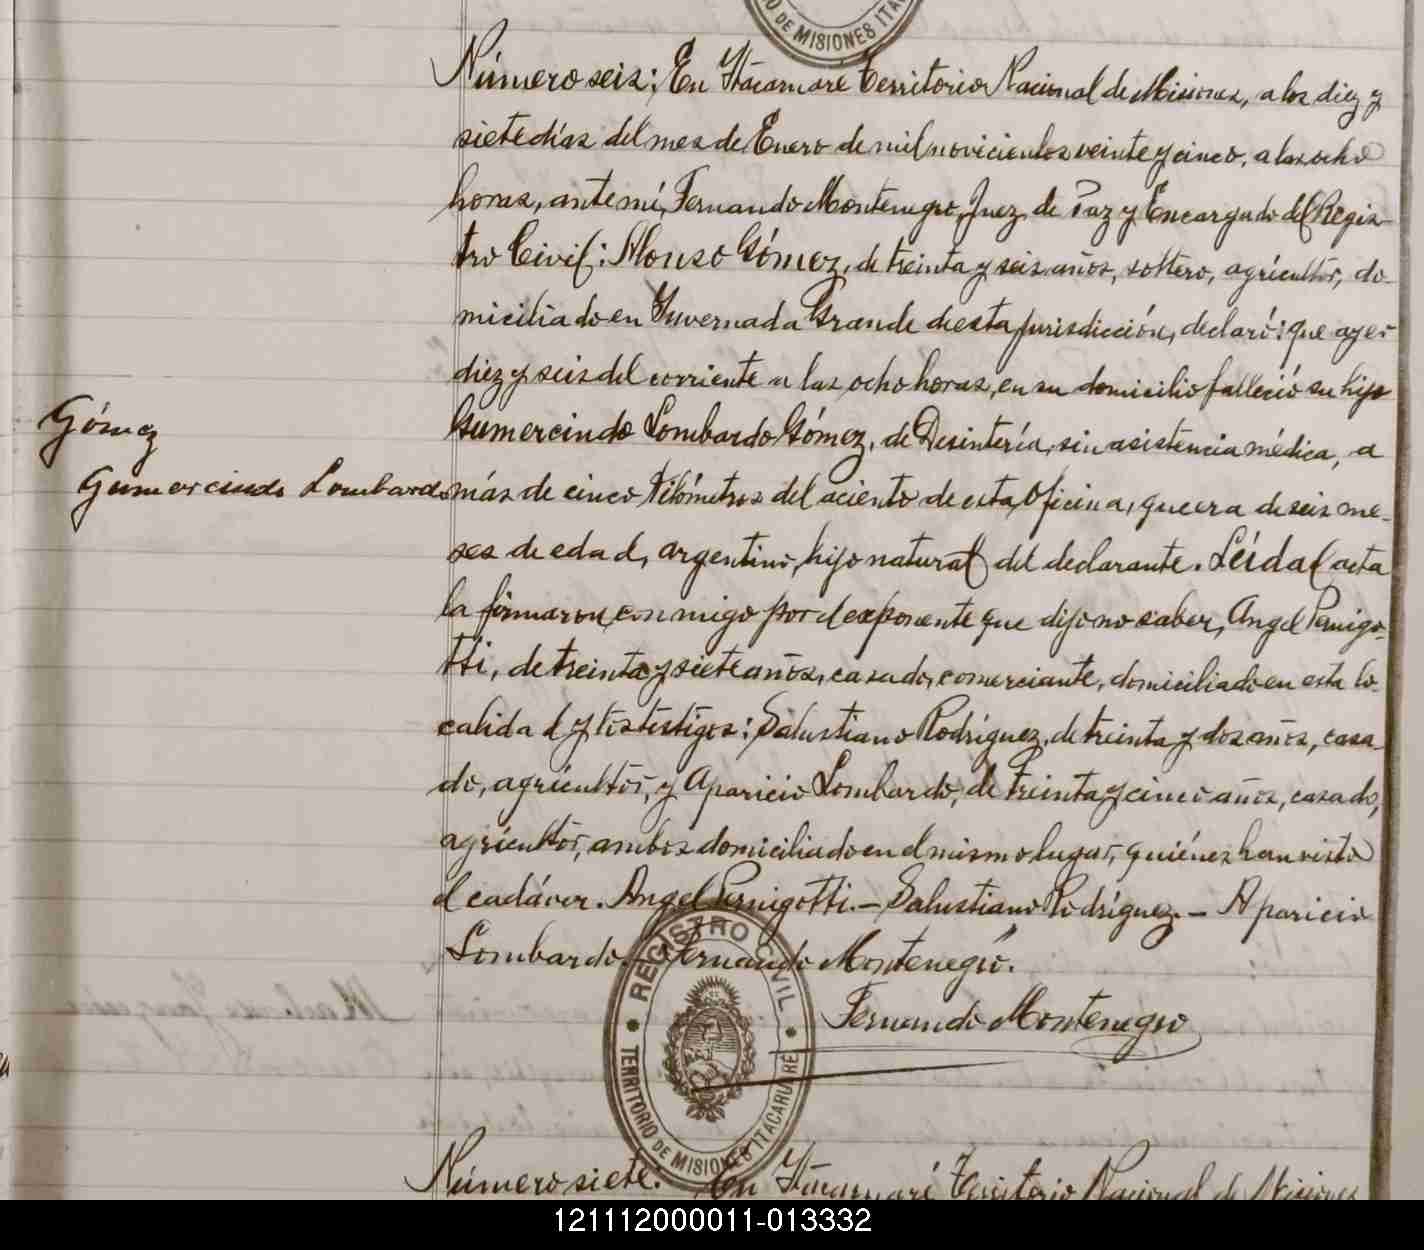 O DE MISIONES ITACA
Número seis: En Itacaruaré Territorio Nacional de Misiones, a los diez y
siete días del mes de Enero de mil novicientos veinte y cinco, a las ocho
horas, ante mí, Fernando Montenegro, Juez de Paz y Encargado del Regis-
tro Civil: Alonso Gómez, de treinta y seis años, soltero, agricultór, do-
miciliado en Invernada Grande de esta jurisdicción, declaró: que ayer
diez y seis del corriente a las ocho horas, en su domicilio falleció su hijo
Gómez
Gumercindo Lombardo Gómez, de Desintería, sin asistencia médica, a
Gumercindo Lombardo
más de cinco Kilómetros del aciento de esta Oficina, que era de seis me-
ses de edad, argentino, hijo natural del declarante. Leída el acta
la firmaron conmigo por el exponente que dijo no saber, Angel Pernigo-
tti, de treinta y siete años, casado, comerciante, domiciliado en esta lo-
calidad y los testigos: Salustiano Rodríguez, de treinta y dos años, casa-
do, agricultór, y Aparicio Lombardo, de treinta y cinco años, casado,
agricultór, ambos domiciliado en el mismo lugar, quiénes han visto
el cadáver. Angel Pernigotti.- Salustiano Rodríguez.- Aparicio
Lombardo.- Fernando Montenegro.
REGISTRO CIVIL
Fernando Montenegro
TERRITORIO DE MISIONES ITACARUARÉ
Número siete: En Itacaruaré Territorio Nacional de Misiones
121112000011-013332